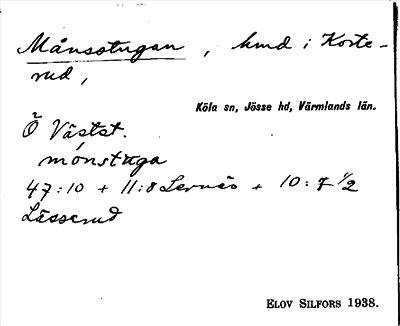 Månsstugan, hmd i Korte-
rud,
Köla sn, Jösse hd, Värmlands län.
Ö Västst.
mónstuga
47:10 + 11:8 Lernäs + 10:7 1/2
Lässerud
ELOV SILFORS 1938.